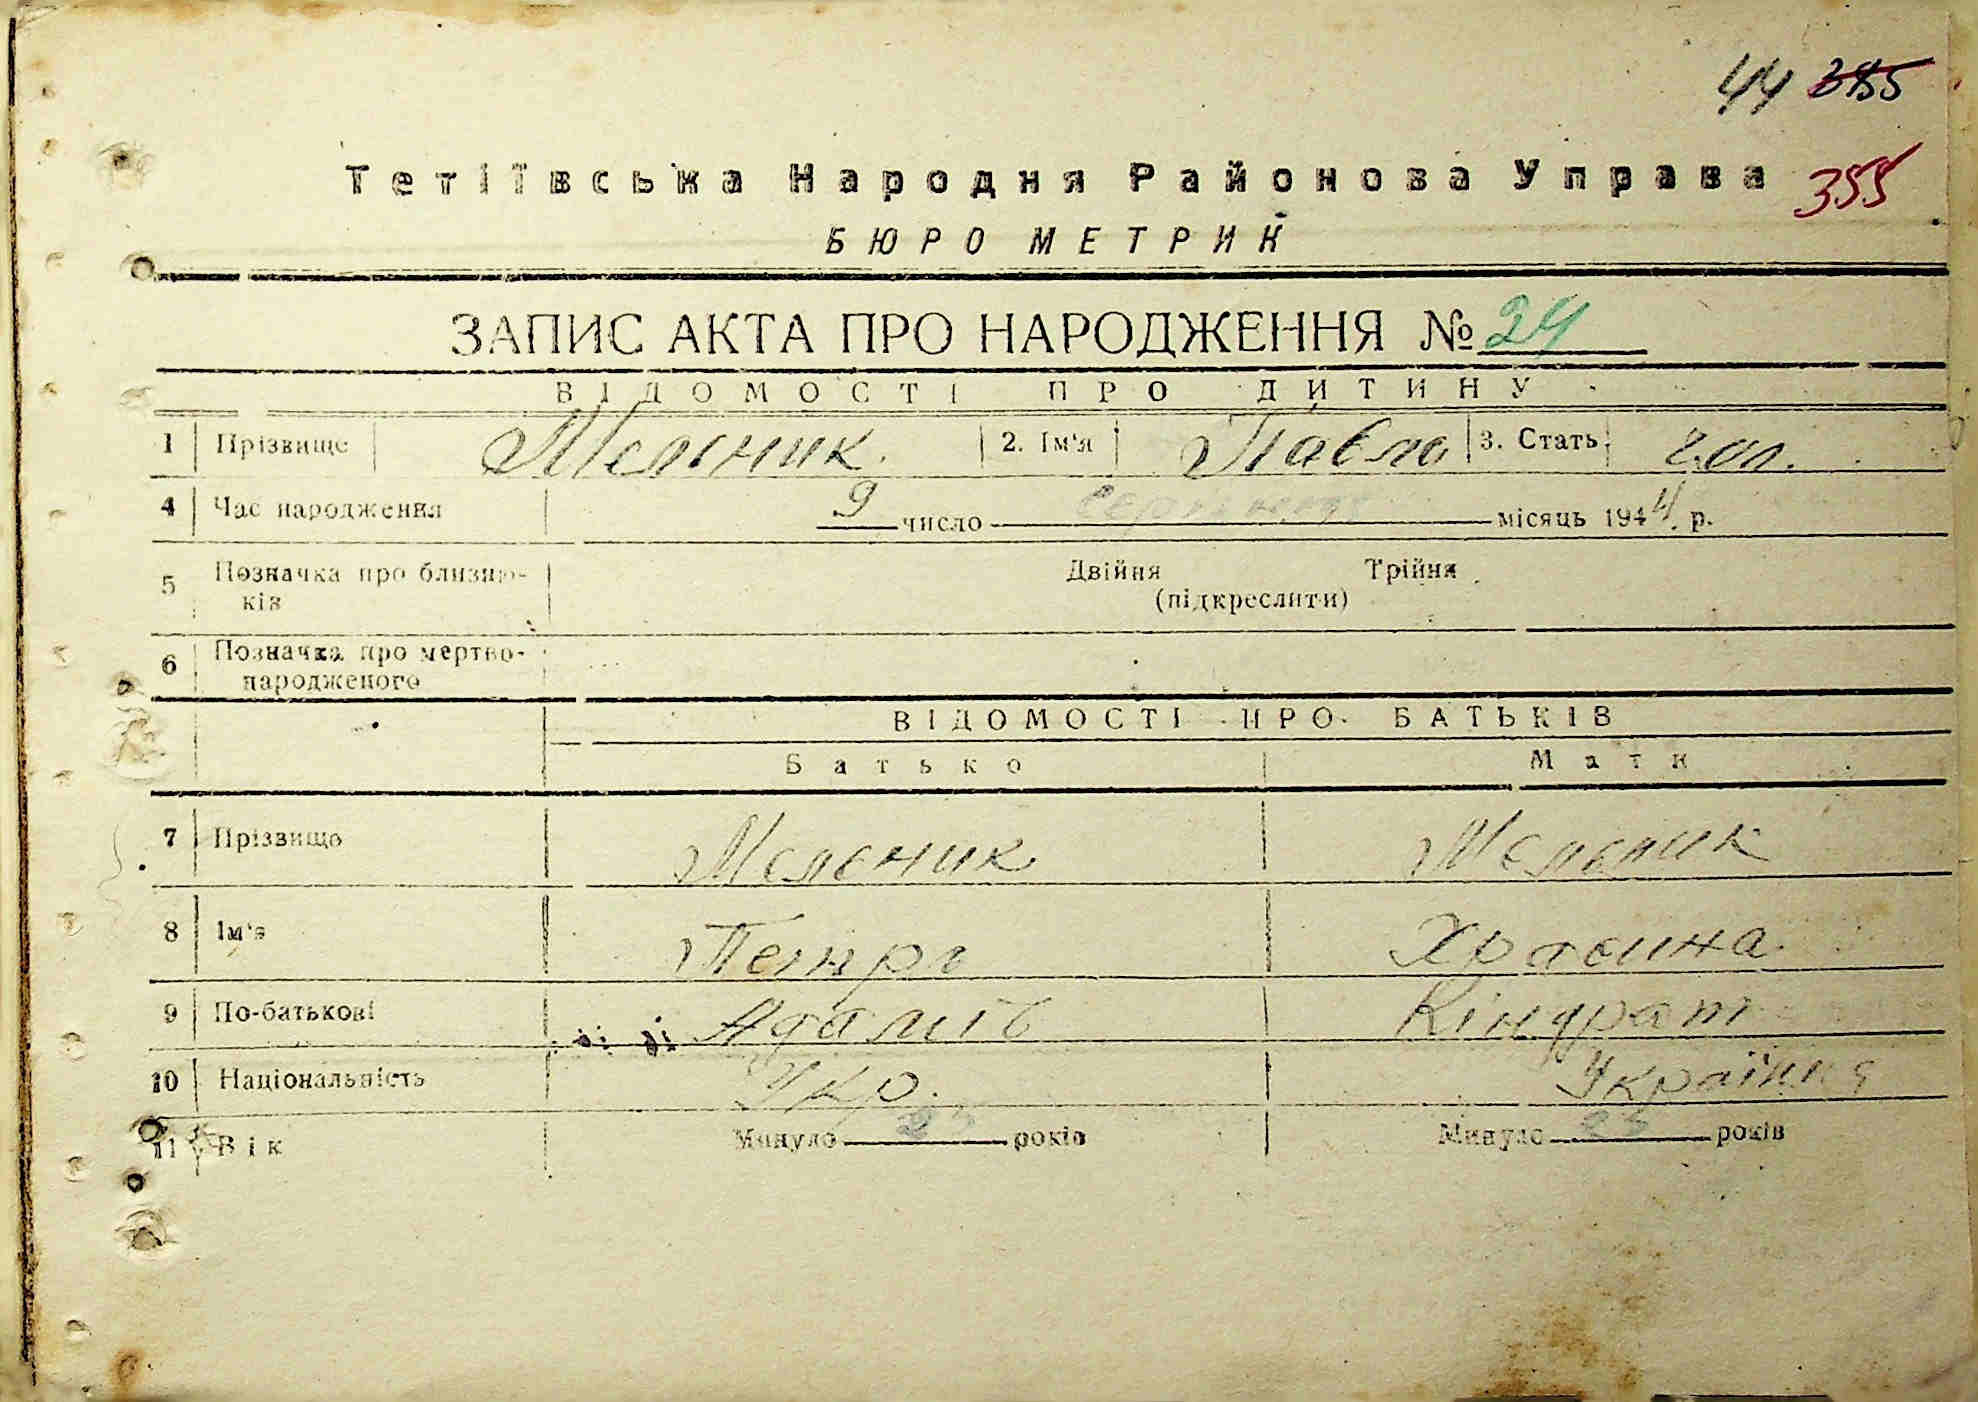 44 385
Тетіївська Народня Районова Управа 355
БЮРО МЕТРИК
ЗАПИС АКТА ПРО НАРОДЖЕННЯ № 24
ВІДОМОСТІ ПРО ДИТИНУ
1 Прізвище Мельник. 2. Ім'я Павло 3. Стать чол.
4 Час народження 9 число серпня місяць 1944 р.
5 Позначка про близню- Двійня Трійня
ків (підкреслити)
6 Позначка про мертво-
народженого
ВІДОМОСТІ ПРО БАТЬКІВ
Батько Мати
7 Прізвище Мельник Мельник
8 Ім'я Петро
9 По-батькові Адамів Кіндрат
10 Національність Укр. Україння
11 Вік Минуло 23 років Минуло 23 років